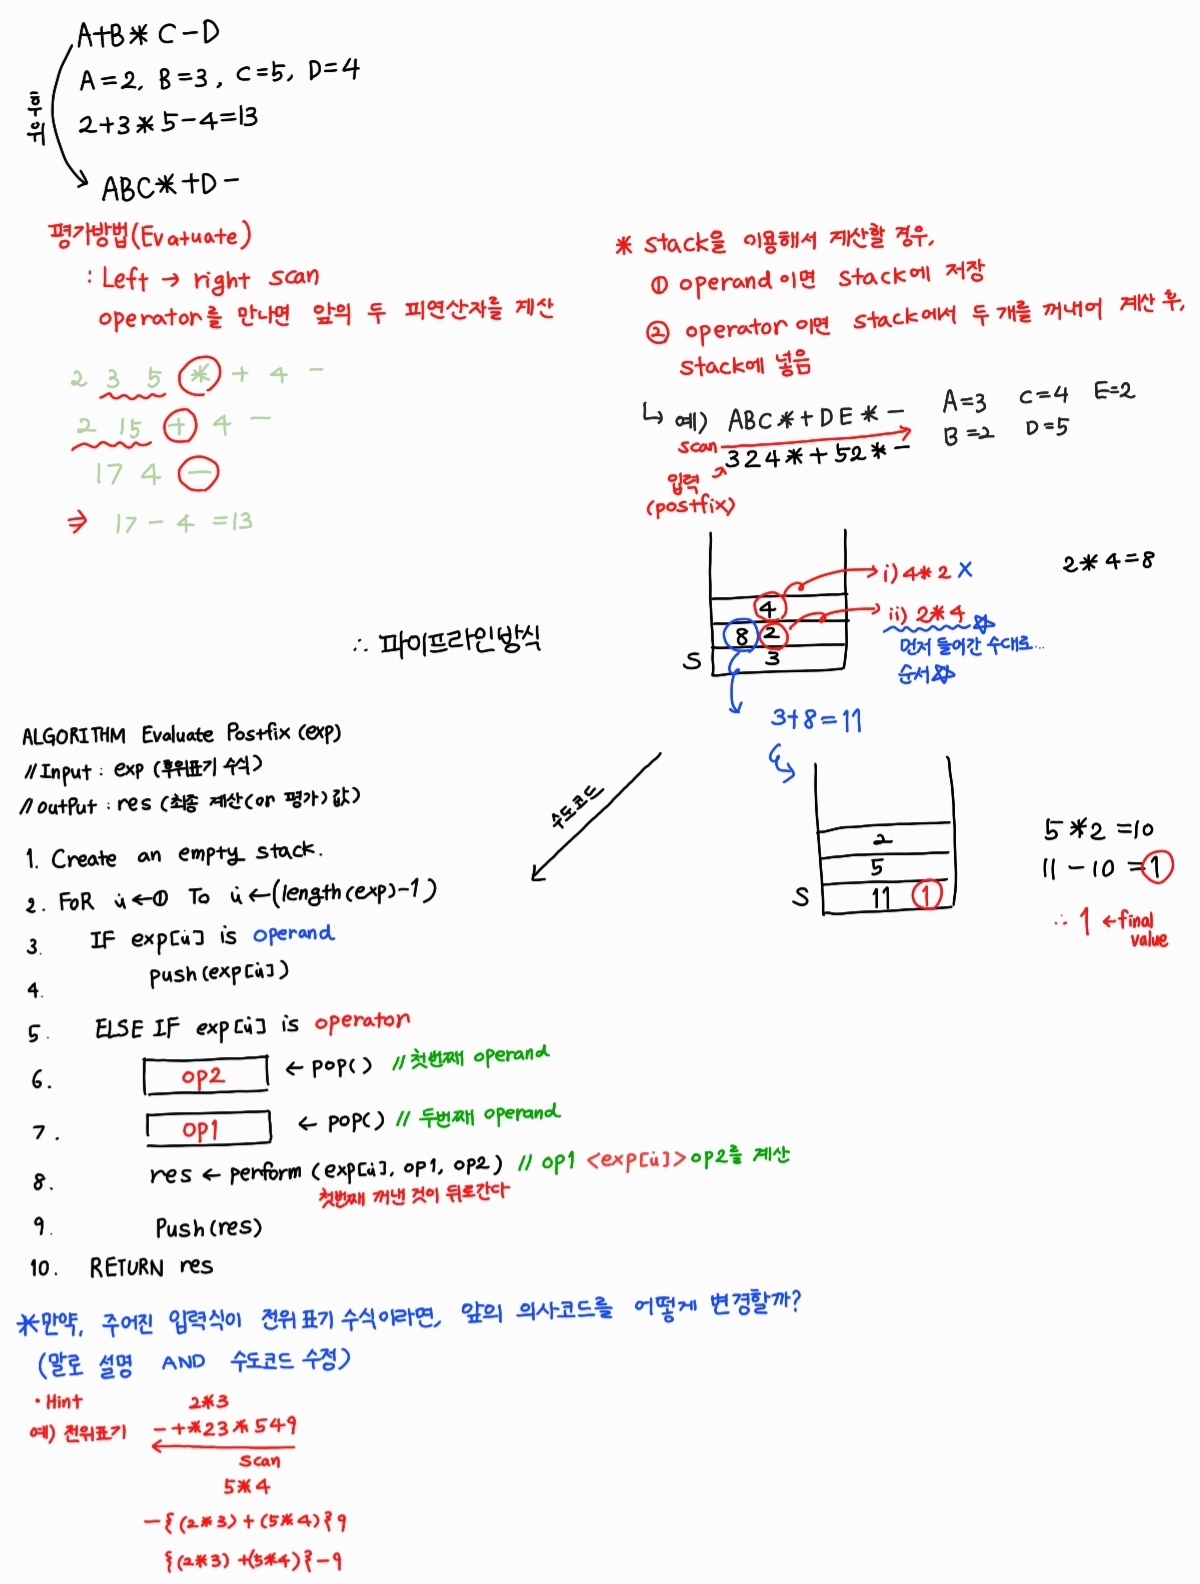 A+B* C-D
A=2, B=3, C=5, D=4
후위
2+3*5-4=13
ABC*+D-
평가방법(Evatuate)
: Left → right scan
operator를 만나면 앞의 두 피연산자를 계산
2 3 5 * + 4 -
2 15 + 4 -
17 4 -
⇒ 17 - 4 =13
* stack을 이용해서 계산할 경우,
① operand 이면 stack에 저장
② operator 이면 stack에서 두 개를 꺼내어 계산 후,
stack에 넣음
↳ 예) ABC*+DE*- A=3 C=4 E=2
B=2 D=5
scan
324*+52*-
입력
(postfix)
i) 4*2 X
2*4=8
4
ii) 2*4 ☆
8 2
먼저 들어간 수대로...
S 3
순서☆
∴ 파이프라인방식
3+8=11
ALGORITHM Evaluate Postfix (exp)
// Input : exp (후위표기 수식)
// output : res (최종 계산(or 평가) 값)
수도코드
2
5
S 11 1
5*2=10
11-10=1
∴ 1 ← final
value
1. Create an empty stack.
2. FOR i ← ① To i ← (length(exp)-1)
3. IF exp[i] is operand
4. push(exp[i])
5. ELSE IF exp[i] is operator
6. op2 ← pop() // 첫번째 operand
7. op1 ← pop() // 두번째 operand
8. res ← perform (exp[i], op1, op2) // op1 <exp[i]> op2를 계산
첫번째 꺼낸 것이 뒤로간다
9. Push(res)
10. RETURN res
*만약, 주어진 입력식이 전위 표기 수식이라면, 앞의 의사코드를 어떻게 변경할까?
(말로 설명 AND 수도코드 수정)
• Hint 2*3
예) 전위표기 -+*23*549
scan
5*4
-{(2*3)+(5*4)}9
{(2*3)+(5*4)}-9